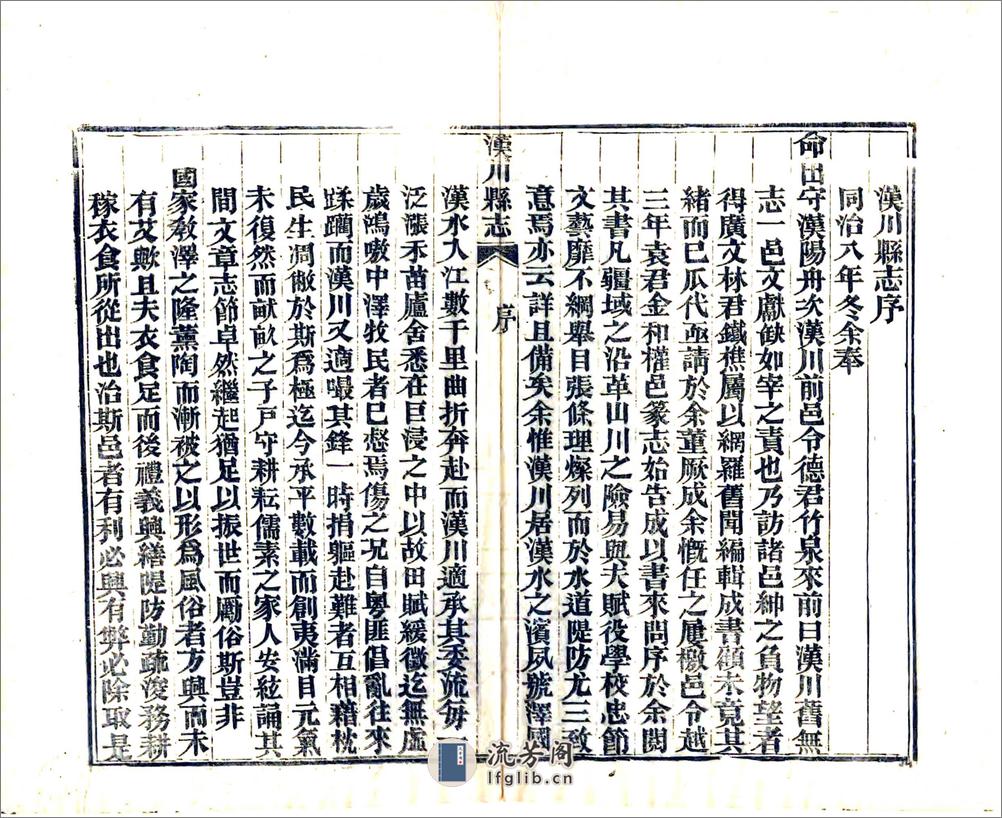 漢川縣志序
同治八年冬余奉
命出守漢陽舟次漢川前邑令德君竹泉來前曰漢川舊無
志一邑文獻缺如宰之責也乃訪諸邑紳之負物望者
得廣文林君鐵樵屬以網羅舊聞編輯成書顧未竟其
緒而已瓜代亟請於余董厥成余慨任之屢檄邑令越
三年袁君金和權邑篆志始告成以書來問序於余閱
其書凡疆域之沿革山川之險易與夫賦役學校忠節
文藝靡不綱舉目張條理燦列而於水道隄防尤三致
意焉亦云詳且備矣余惟漢川居漢水之濱夙號澤國
漢川縣志
序
漢水入江數千里曲折奔赴而漢川適承其委流每一
泛漲禾苗廬舍悉在巨浸之中以故田賦緩徵迄無虛
歲鴻嗷中澤牧民者已愀焉傷之況自粵匪倡亂往來
蹂躪而漢川又適嘬其鋒一時捐軀赴難者互相藉枕
民生凋敝於斯爲極迄今承平數載而創夷滿目元氣
未復然而猷畝之子戸守耕耘儒素之家人安絃誦其
間文章志節卓然繼起猶足以振世而勵俗斯豈非
國家敎澤之隆薰陶而漸被之以形爲風俗者方興而未
有艾歟且夫衣食足而後禮義興繕隄防勤疏浚務耕
稼衣食所從出也治斯邑者有利必興有弊必除取是
流芳阁
lfglib.cn